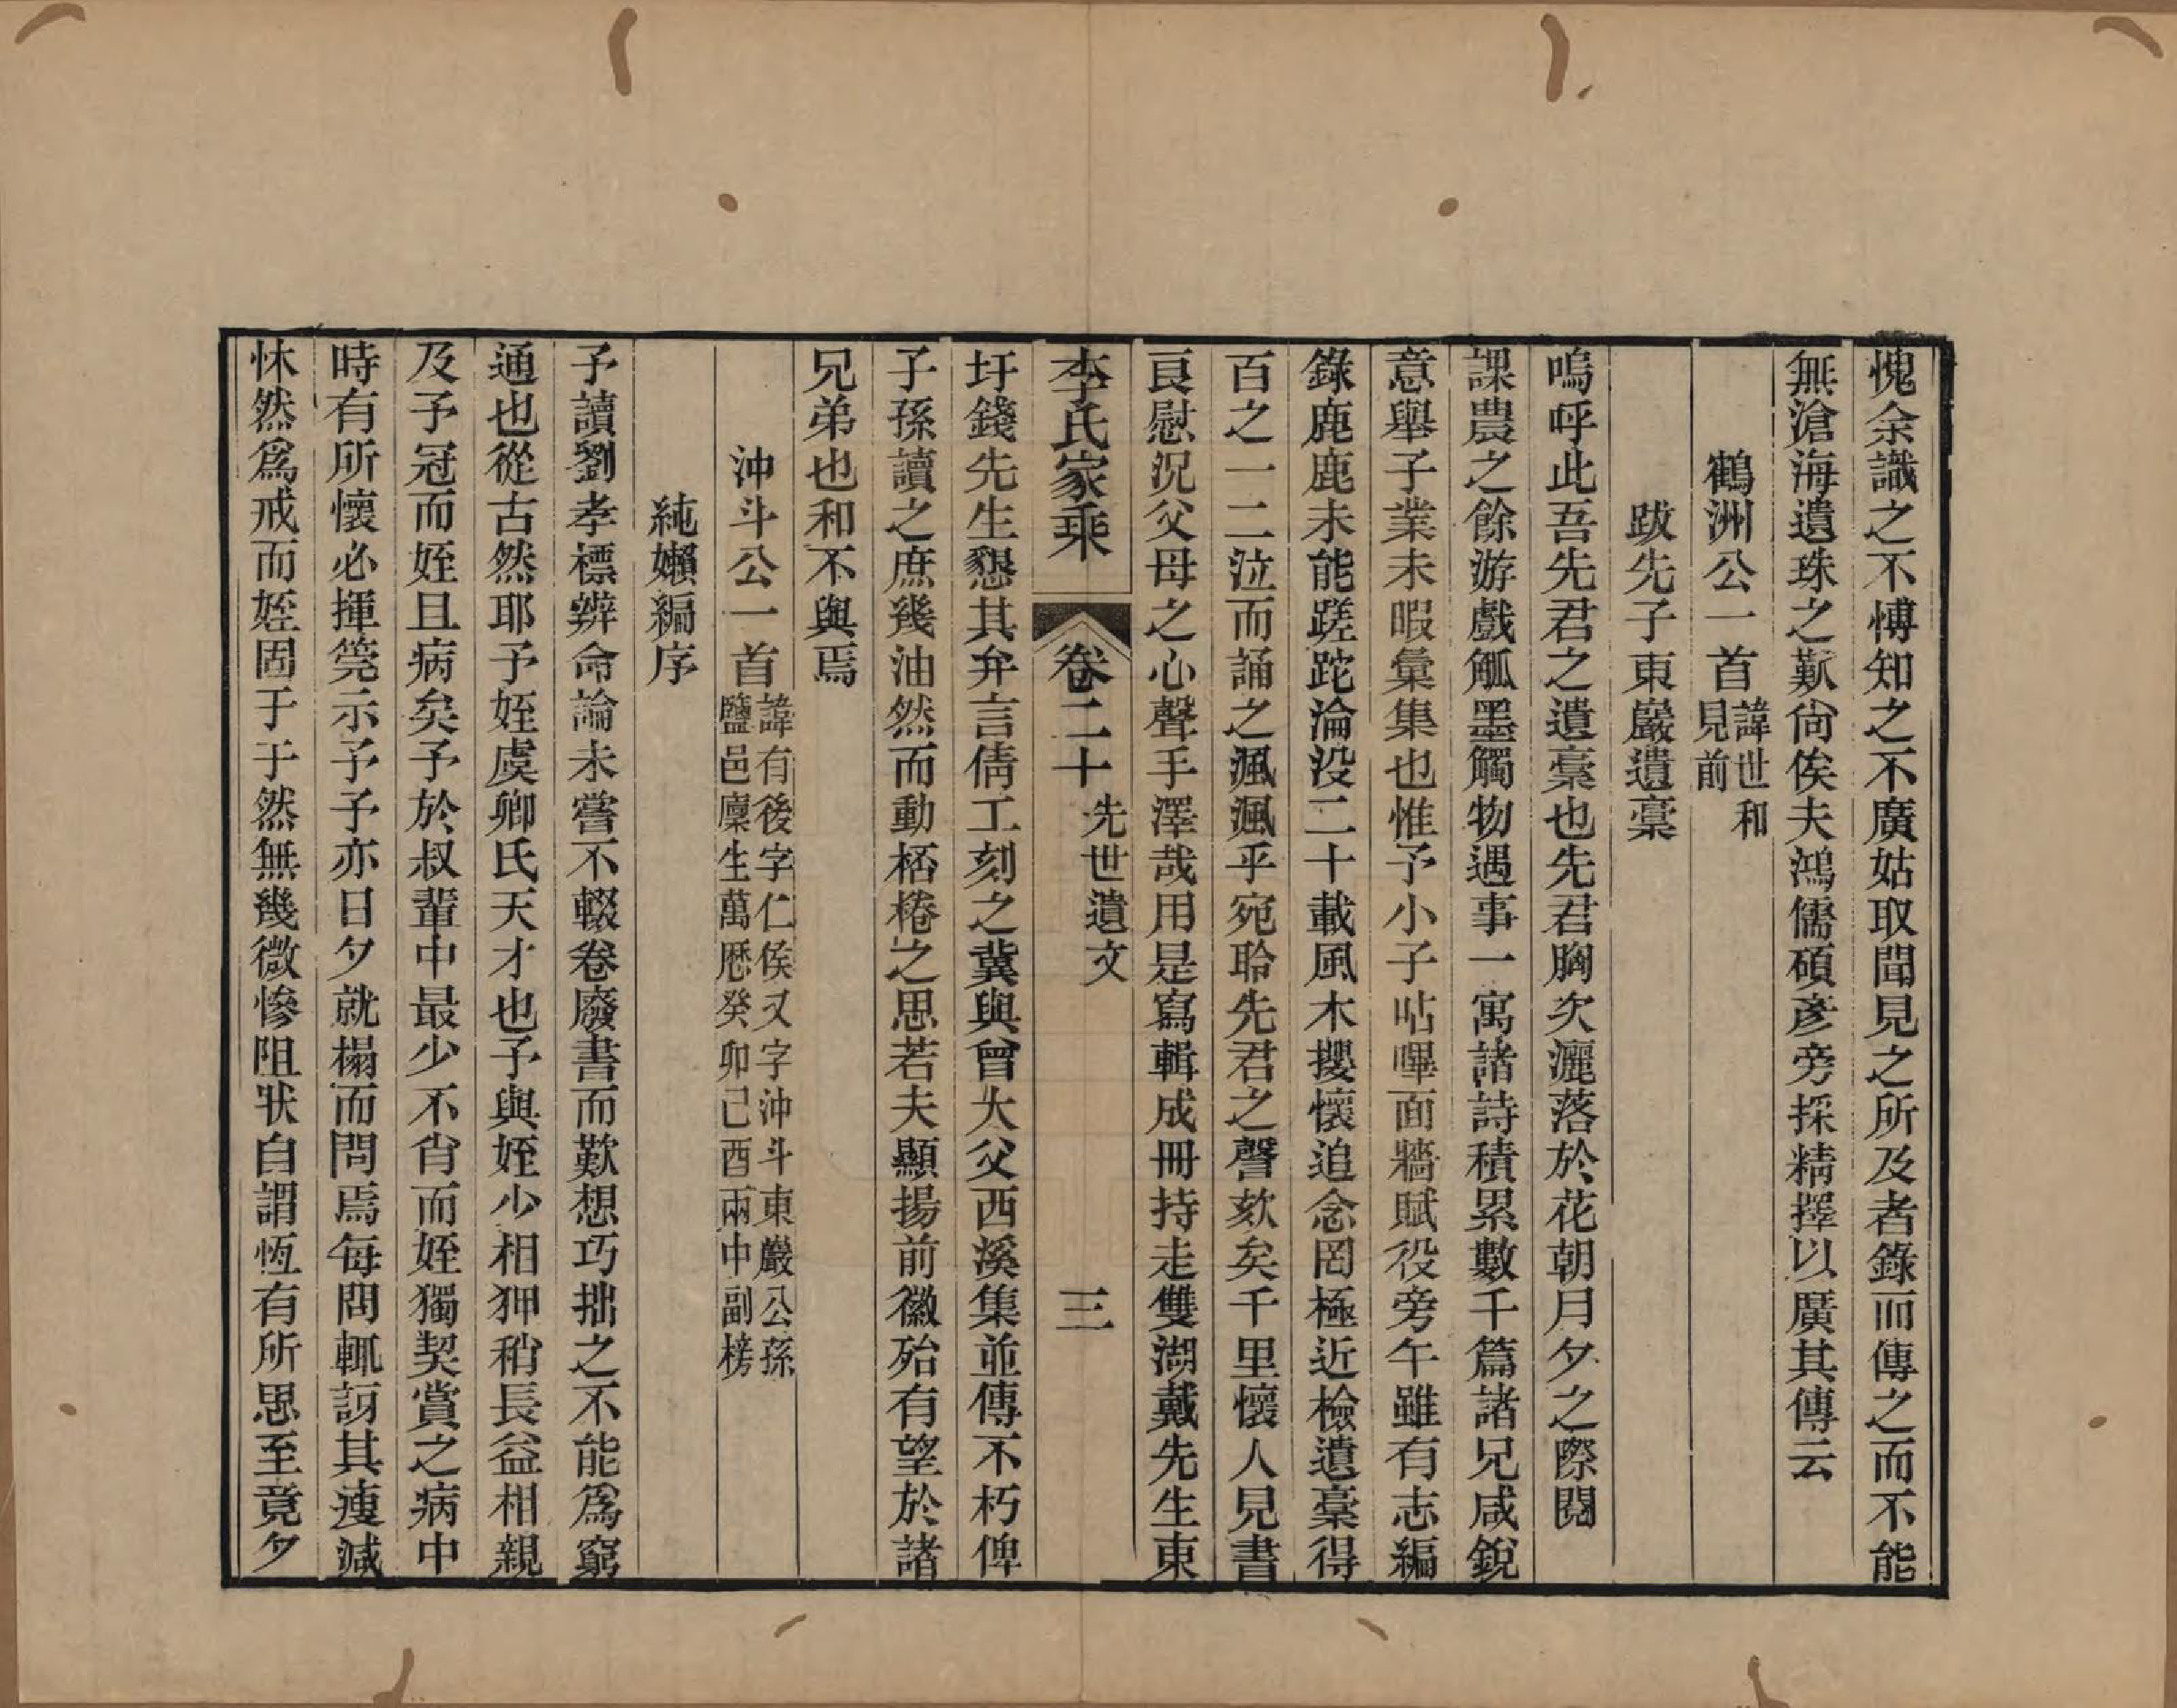 愧余識之不博知之不廣姑取聞見之所及者錄而傳之而不能
無滄海遺珠之歎尙俟夫鴻儒碩彥旁採精擇以廣其傳云
鶴洲公一首諱世和見前
跋先子東巖遺稾
嗚呼此吾先君之遺稾也先君胸次灑落於花朝月夕之際閱
課農之餘游戲觚墨觸物遇事一寓諸詩積累數千篇諸兄咸銳
意舉子業未暇彙集也惟予小子呫嗶面牆賦役旁午雖有志編
錄鹿鹿未能蹉跎淪没二十載風木攖懷追念罔極近檢遺稾得
百之一二泣而誦之渢渢乎宛聆先君之謦欬矣千里懷人見書
良慰況父母之心聲手澤哉用是寫輯成冊持走雙湖戴先生東
李氏家乘 卷二十 先世遺文 三
圩錢先生懇其弁言倩工刻之冀與曾大父西溪集並傳不朽俾
子孫讀之庶幾油然而動桮棬之思若夫顯揚前徽殆有望於諸
兄弟也和不與焉
沖斗公一首諱有後字仁侯又字沖斗東巖公孫鹽邑廩生萬厯癸卯己酉兩中副榜
純嬾編序
予讀劉孝標辨命論未嘗不輟卷廢書而歎想巧拙之不能爲窮
通也從古然耶予姪虞卿氏天才也予與姪少相狎稍長益相親
及予冠而姪且病矣予於叔輩中最少不肖而姪獨契賞之病中
時有所懷必揮筦示予予亦日夕就榻而問焉每問輒訝其痩減
怵然爲戒而姪固于于然無幾微慘阻狀自謂恆有所思至竟夕